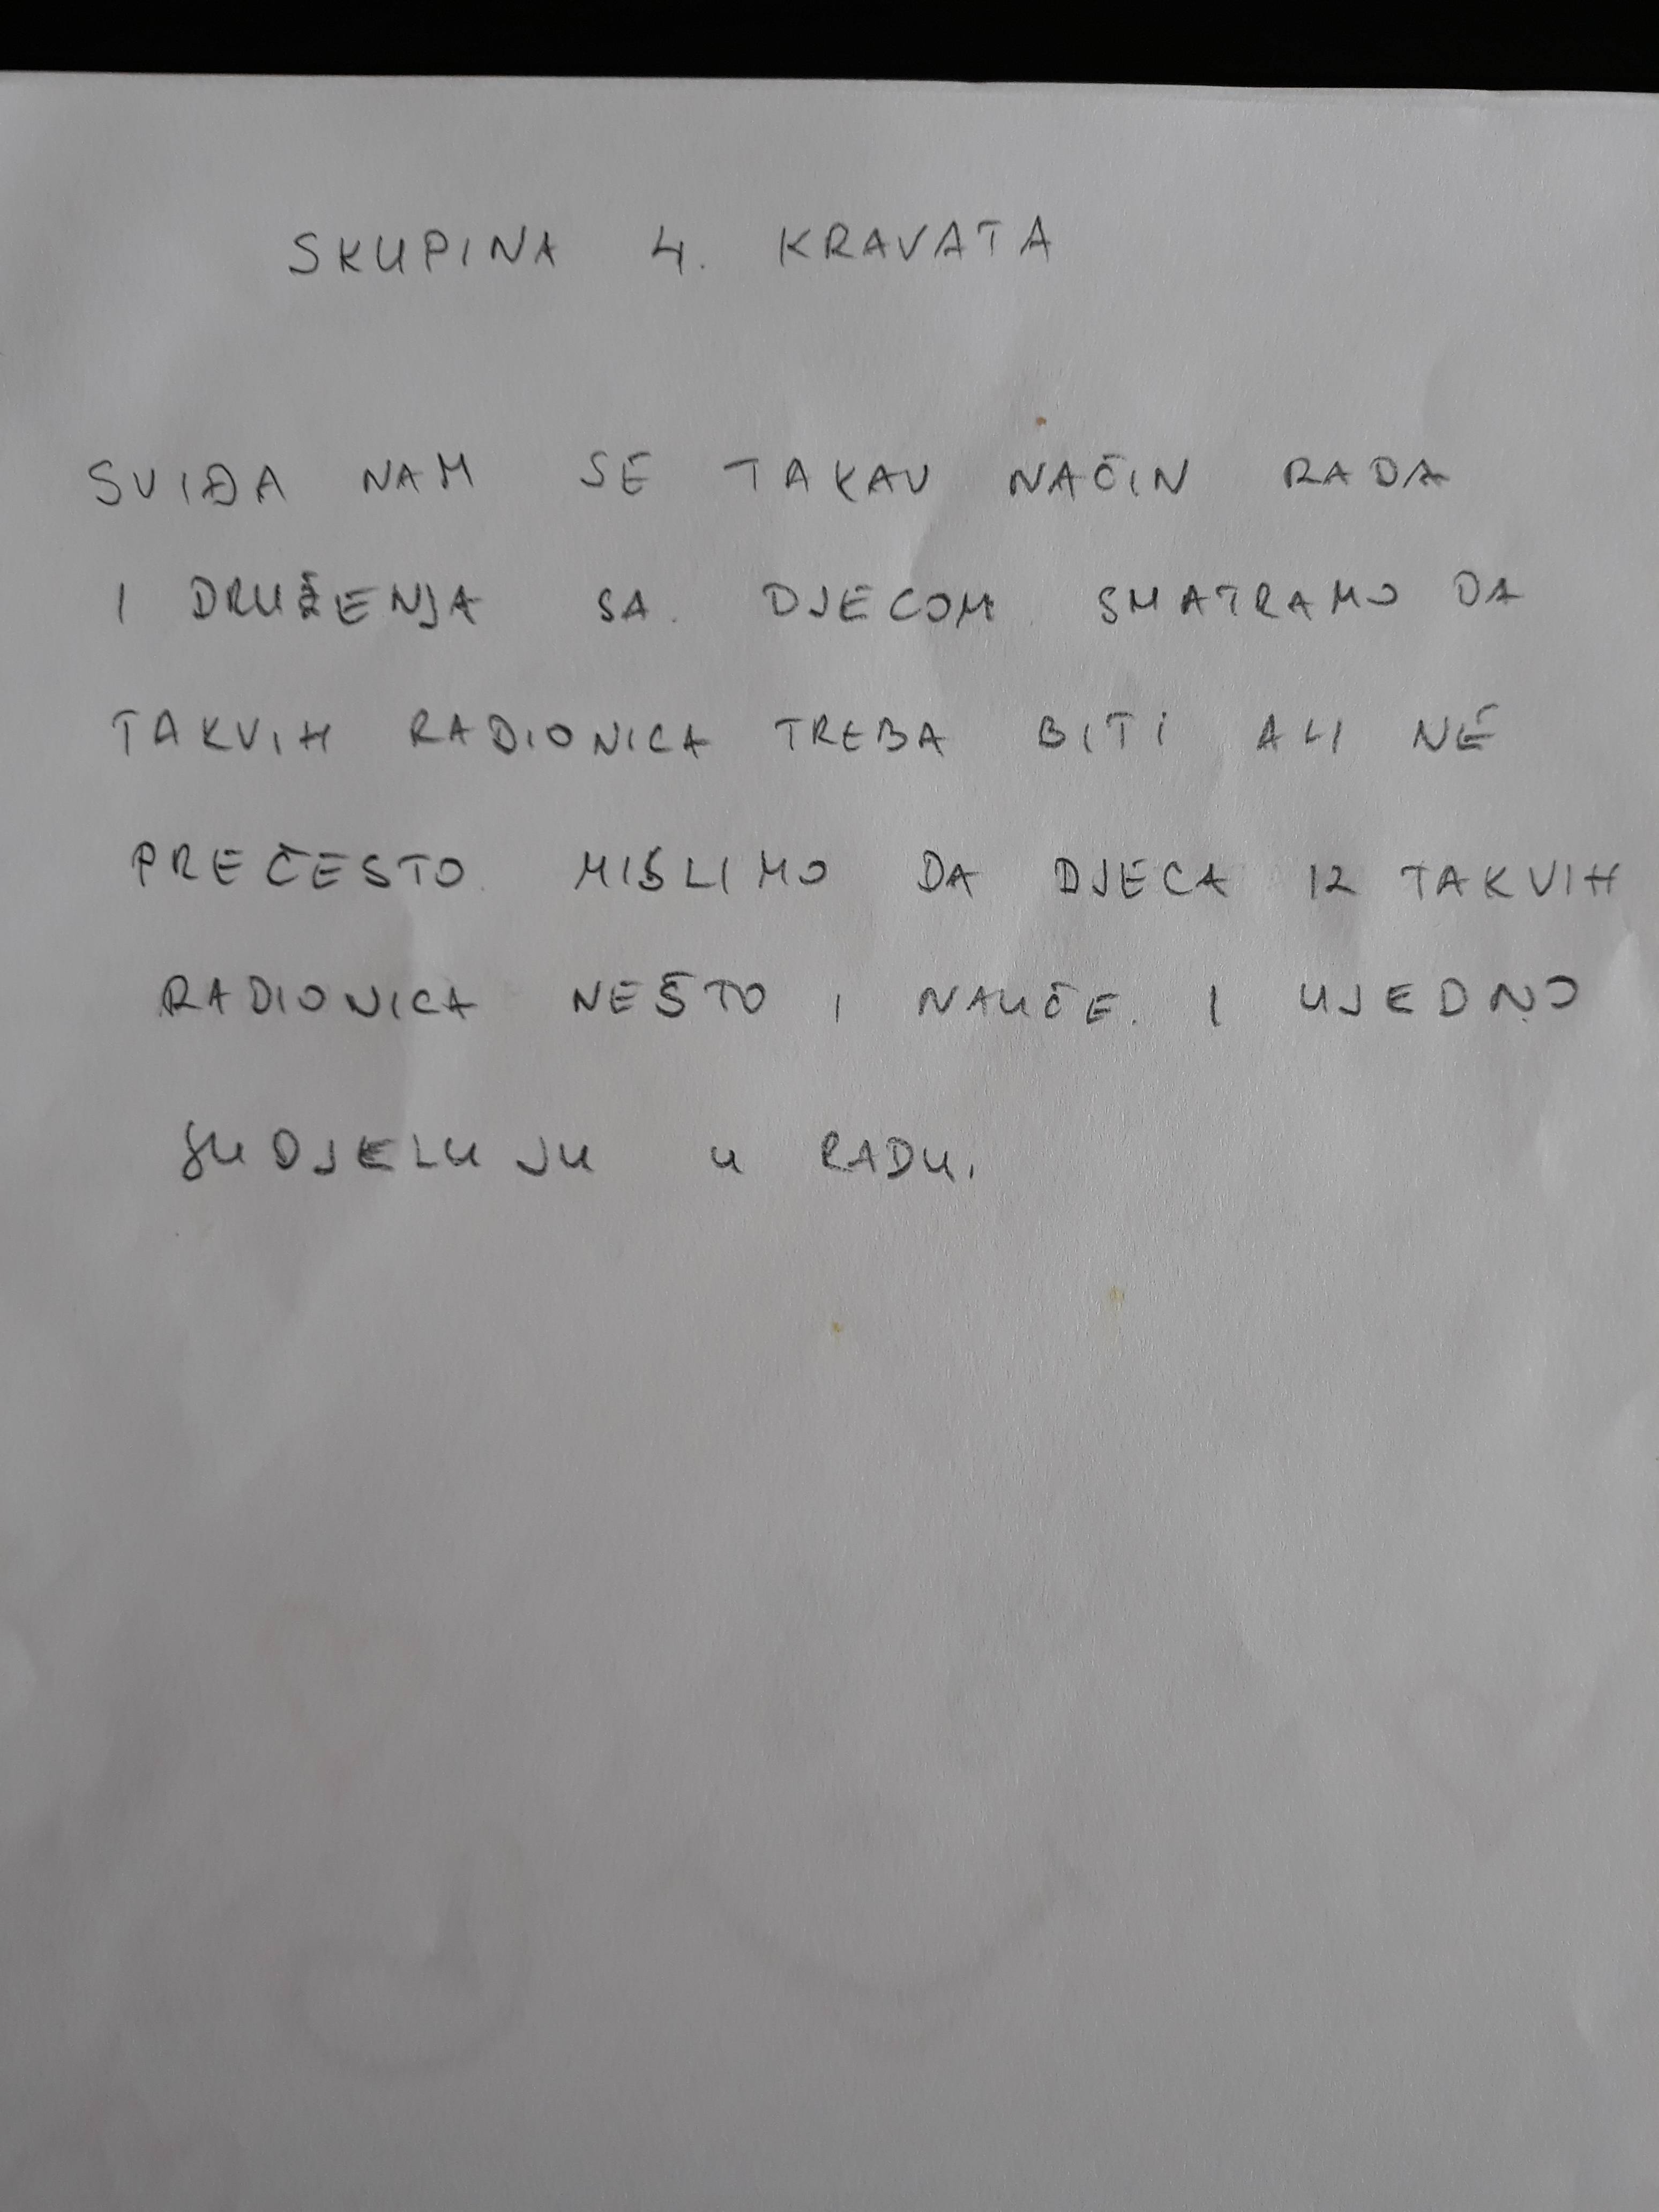 SKUPINA 4. KRAVATA
SVIĐA NAM SE TAKAV NAČIN RADA
I DRUŽENJA SA DJECOM. SMATRAMO DA
TAKVIH RADIONICA TREBA BITI ALI NE
PREČESTO. MISLIMO DA DJECA IZ TAKVIH
RADIONICA NEŠTO I NAUČE. I UJEDNO
SUDJELUJU U RADU.